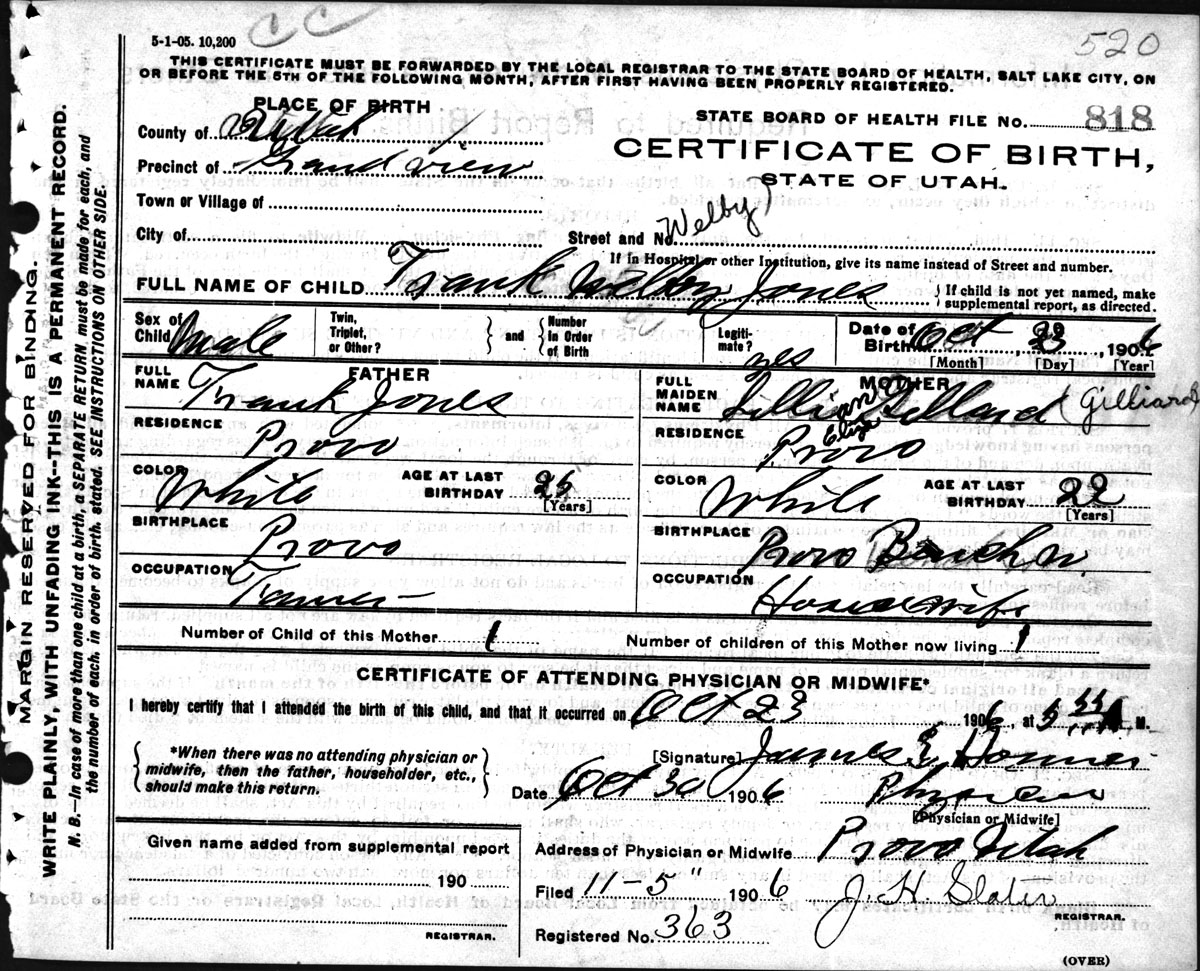 5-1-05. 10,200
CC
520
THIS CERTIFICATE MUST BE FORWARDED BY THE LOCAL REGISTRAR TO THE STATE BOARD OF HEALTH, SALT LAKE CITY, ON
OR BEFORE THE 5TH OF THE FOLLOWING MONTH, AFTER FIRST HAVING BEEN PROPERLY REGISTERED.
PLACE OF BIRTH
STATE BOARD OF HEALTH FILE NO. 818
County of Utah
CERTIFICATE OF BIRTH,
Precinct of Grand view
STATE OF UTAH.
Town or Village of
Welby
City of
Street and No.
If in Hospital or other Institution, give its name instead of Street and number.
FULL NAME OF CHILD Frank Welby Jones
{If child is not yet named, make
supplemental report, as directed.
Sex of Child Male
Twin, Triplet, or Other? } and { Number in Order of Birth
Legitimate? yes
Date of Birth Oct 23, 1906
[Month] [Day] [Year]
FATHER
FULL NAME Frank Jones
RESIDENCE Provo
COLOR White
AGE AT LAST BIRTHDAY 25
[Years]
BIRTHPLACE Provo
OCCUPATION Farmer
MOTHER
FULL MAIDEN NAME Lillie Gillard (Gilliard)
Eliza
RESIDENCE Provo
COLOR White
AGE AT LAST BIRTHDAY 22
[Years]
BIRTHPLACE Provo Bench
OCCUPATION Housewife
Number of Child of this Mother 1
Number of children of this Mother now living 1
CERTIFICATE OF ATTENDING PHYSICIAN OR MIDWIFE*
I hereby certify that I attended the birth of this child, and that it occurred on Oct 23 1906, at 5 55 A M.
{*When there was no attending physician or
midwife, then the father, householder, etc.,
should make this return.}
[Signature] James E
Date Oct 30 1906 Physician
[Physician or Midwife]
Given name added from supplemental report
190
REGISTRAR.
Address of Physician or Midwife Provo Utah
Filed 11-5" 1906 J. H. Slater
REGISTRAR.
Registered No. 363
(OVER)
MARGIN RESERVED FOR BINDING.
WRITE PLAINLY, WITH UNFADING INK--THIS IS A PERMANENT RECORD.
N. B.—In case of more than one child at a birth, a SEPARATE RETURN must be made for each, and
the number of each, in order of birth, stated. SEE INSTRUCTIONS ON OTHER SIDE.